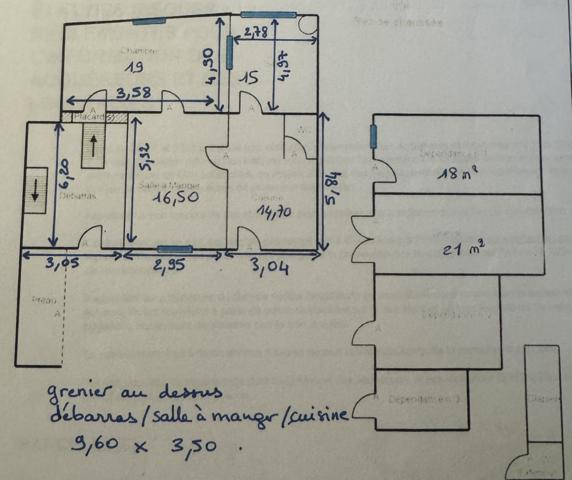 Chambre
19
4,30
2,78
15
4,97
3,58
A
A
A
Placard(s)
6,20
5,32
A
5,84
Débarras
Salle à Manger
16,50
Cuisine
14,70
A
A
3,05
2,95
3,04
Préau
A
Dépendance
18 m²
A
21 m²
A
A
A
Dépendance
grenier au dessus
débarras/salle à manger/cuisine
9,60 x 3,50 .